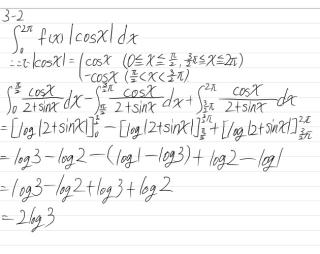 3-2
∫₀^{2π} f(x)|cosx|dx
∴で|cosx| = { cosx (0≦x≦π/2, 3/2π≦x≦2π)
-cosx (π/2<x<3/2π)
∫₀^{π/2} cosx/(2+sinx) dx - ∫_{π/2}^{3/2π} cosx/(2+sinx) dx + ∫_{3/2π}^{2π} cosx/(2+sinx) dx
= [log|2+sinx|]₀^{π/2} - [log|2+sinx|]_{π/2}^{3/2π} + [log|2+sinx|]_{3/2π}^{2π}
= log3 - log2 - (log1 - log3) + log2 - log1
= log3 - log2 + log3 + log2
= 2log3